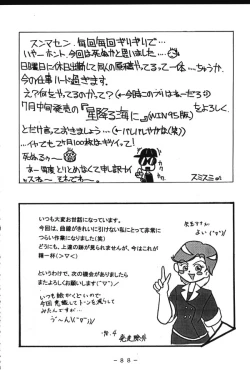 スンマセン、毎回毎回ギリギリで…
いやーホント、今回は死ぬかと思いました…
日曜日に休日出勤して同人の原稿やってるって一体…ちゅうか、
今の仕事ハード過ぎます。
え?何をやってるのかって?(←今時このフリはねーだろう)
7月中旬発売の『星降る海に』(WIN95版)をよろしく
とだけ言っておきましょう…(←バレバレやがな(笑))
…イヤでも2ヶ月100枚はキツイって?
死ぬる〜
スミスミ
いつも大変お世話になっています。
今回は、曲線がきれいに引けない私にとって非常に
つらい作業になりました(笑)
どうにも、上達の跡が見られませんが、今はこれが
精一杯(＞▽＜)
というわけで、次の機会がありましたら
またよろしくお願いします(^▽^)／
いつも時かくといので
今回意識してトーンを減らして
みたんですが…
う〜ん\(^▽^)/
－８８－